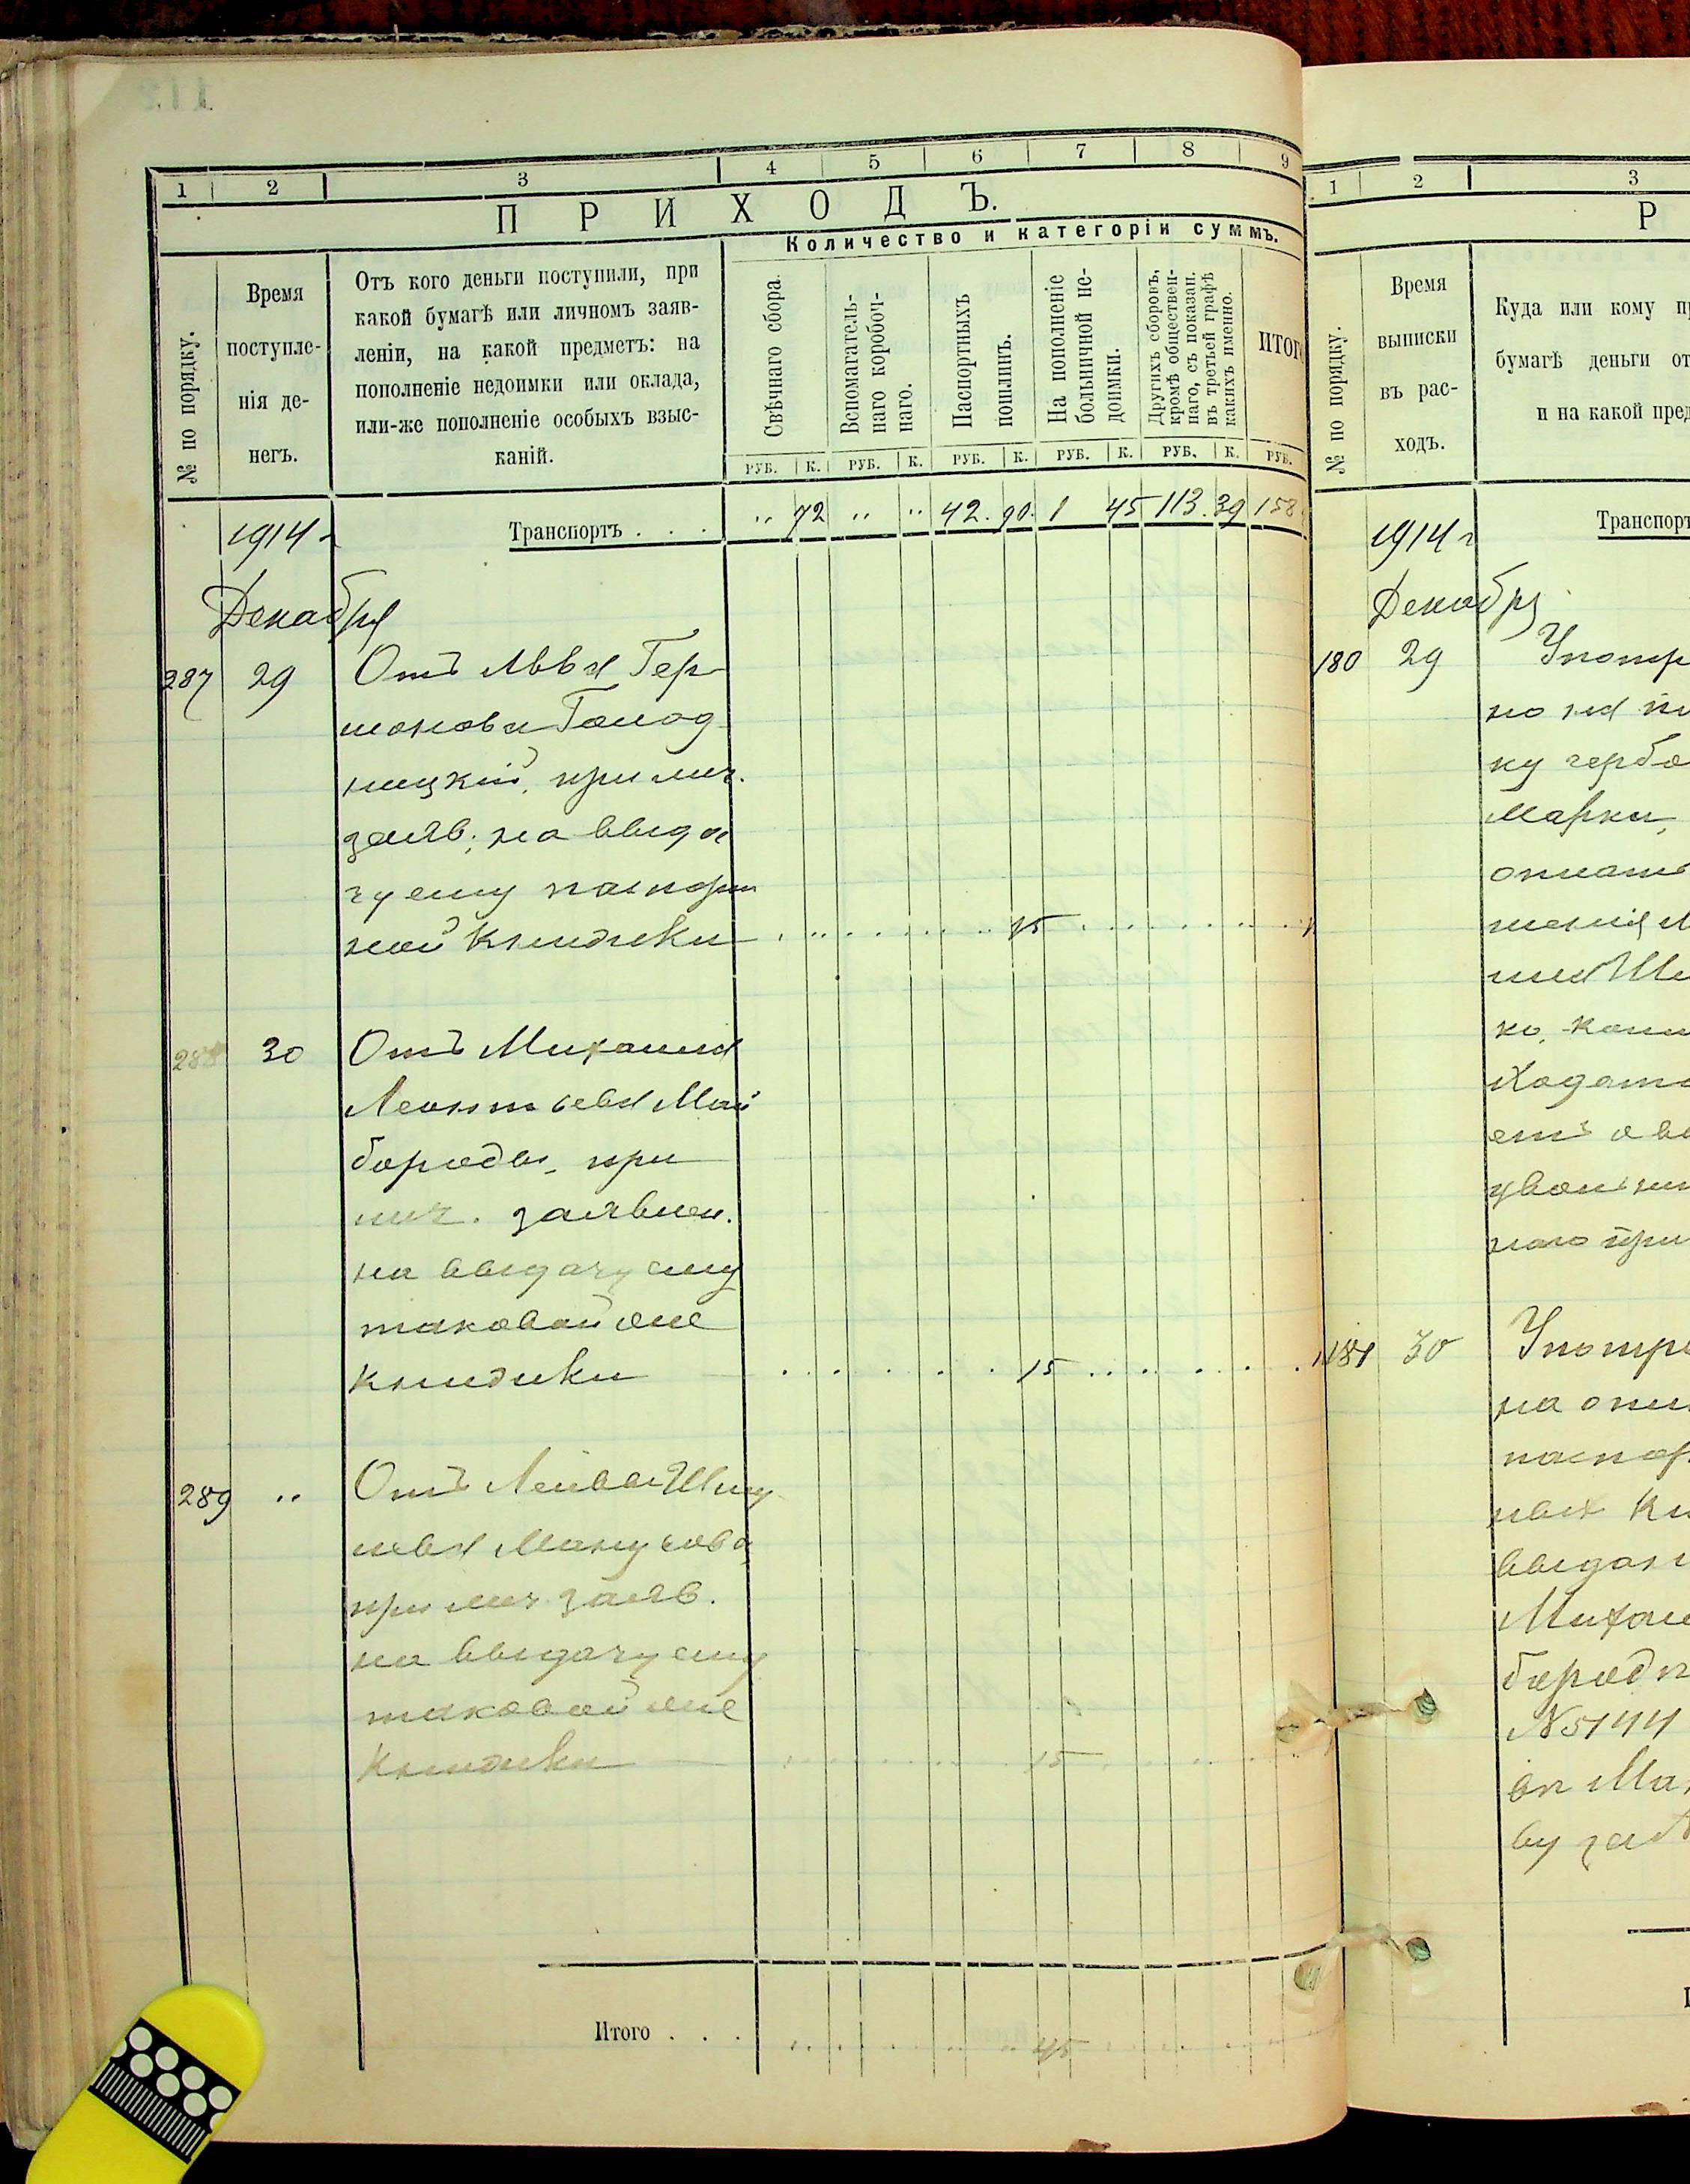 1 2 3 4 5 6 7 8 9
ПРИХОДЪ.
Количество и категоріи суммъ.
№ по порядку.
Время
поступле-
нія де-
негъ.
Отъ кого деньги поступили, при
какой бумагѣ или личномъ заяв-
леніи, на какой предметъ: на
пополненіе недоимки или оклада,
или-же пополненіе особыхъ взыс-
каній.
Свѣчнаго сбора.
Вспомагатель-
наго коробоч-
наго.
Паспортныхъ
пошлинъ.
На пополненіе
больничной не-
доимки.
Другихъ сборовъ,
кромѣ обществен-
наго, съ показан.
въ третьей графѣ
какихъ именно.
ИТОГ
РУБ. К. РУБ. К. РУБ. К. РУБ. К. РУБ. К. РУБ.
1914 г
Транспортъ . . . " 72 " " 42. 90. 1 45 113. 39 158
Декабря
287 29 Отъ Аввы Гер
шонова
ницкій, при лич.
заяв. на выда
чу ему паспорт
ной книжки 15
288 30 Отъ Михаила
Леонтьева Май
бороды, при
лич. заявлен.
на выдачу ему
таковой же
книжки 15
289 " Отъ Лейвы Шму
лева Манусова,
при лич. заяв.
на выдачу ему
таковой же
книжки 15
Итого . . . 45
1 2 3
Р
№ по порядку.
Время
выписки
въ рас-
ходъ.
Куда или кому п
бумагѣ деньги от
и на какой пред
1914 г
Транспорт
Декабря
180 29 Употр
но на по
ку гербо
марки,
оплат
жения М
ко, кото
ходата
етъ о вы
наго при
181 30 Употре
на опл
паспор
ных кн
выдан
Михаи
бород
№ 5144
Ма
ву за